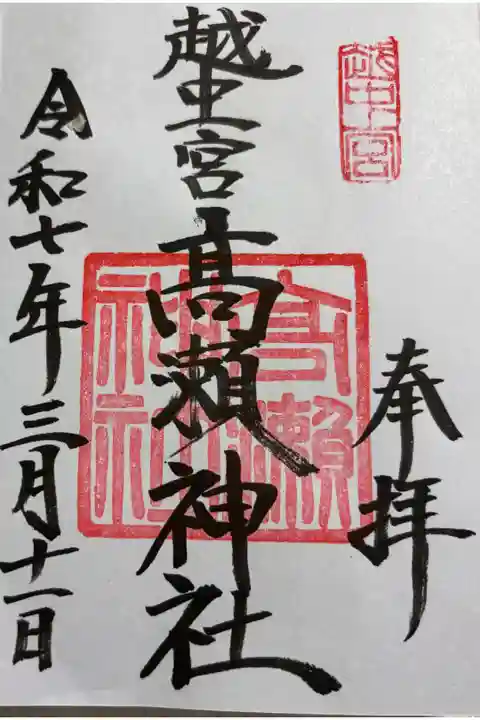 越中宮
奉拝
越中宮髙瀬神社
高瀬神社
令和七年三月十一日